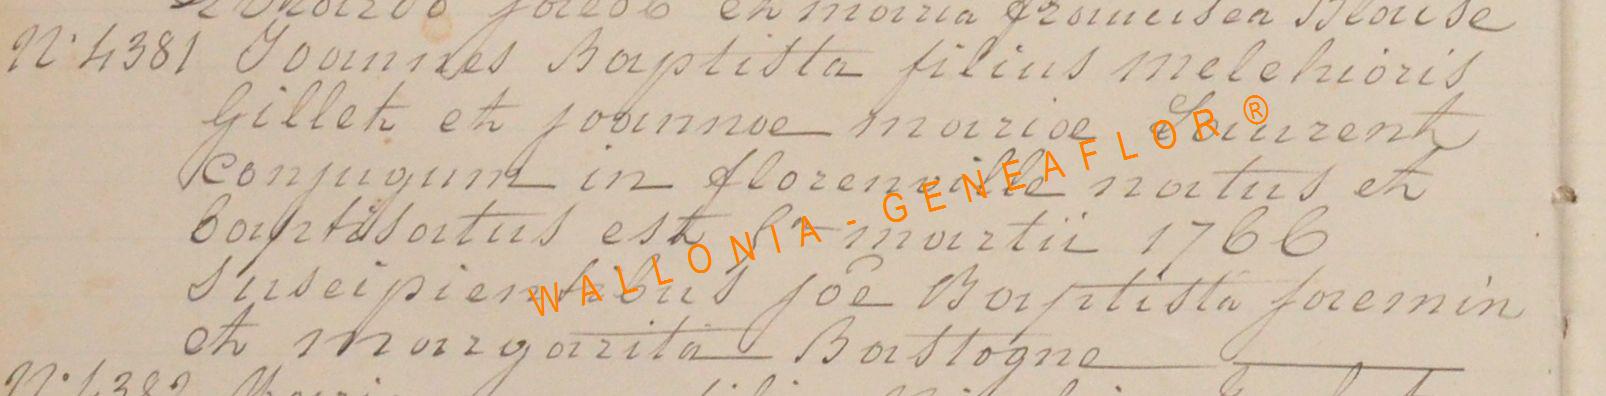 jacob et maria francisca Blaise
N° 4381 Joannes Baptista filius melchioris
Gillet et joannae mariae Laurent
conjugum in florenville natus et
baptisatus est martii 1766
suscipientibus joê Baptista jaemin
et margarita Bastogne
N° 4382
WALLONIA - GENEAFLOR ®